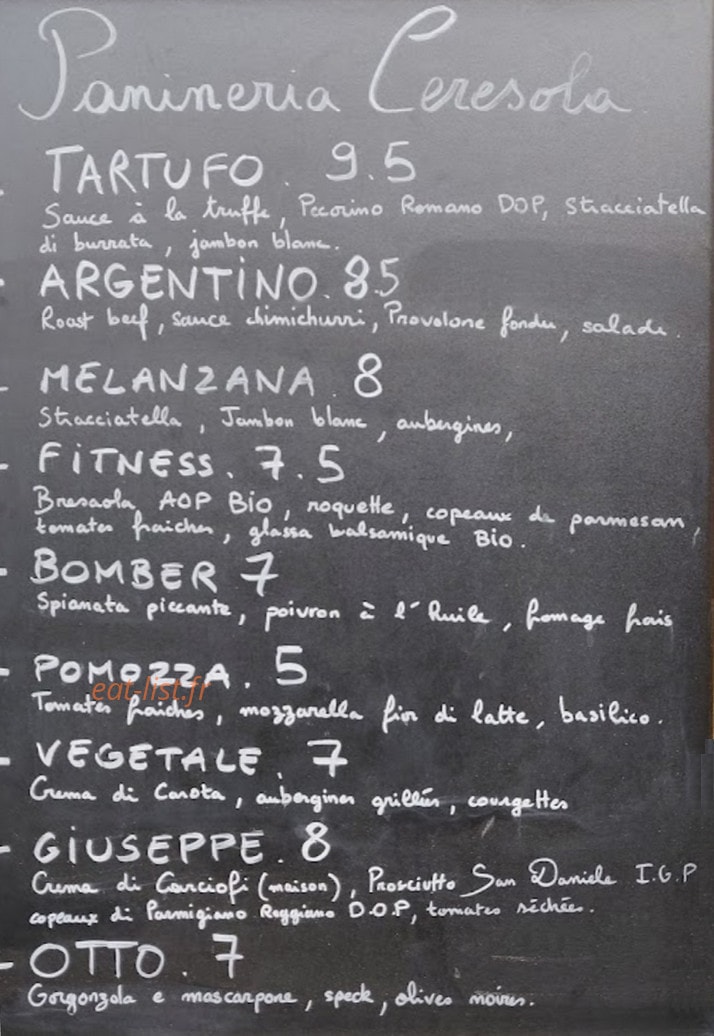 Panineria Ceresola
- TARTUFO. 9.5
Sauce à la truffe, Pecorino Romano DOP, Stracciatella
di burrata, jambon blanc.
- ARGENTINO. 8.5
Roast beef, sauce chimichurri, Provolone fondu, salade.
- MELANZANA. 8
Stracciatella, Jambon blanc, aubergines,
- FITNESS. 7.5
Bresaola AOP Bio, roquette, copeaux de parmesan,
tomates fraiches, glassa balsamique Bio.
- BOMBER 7
Spianata piccante, poivron à l'Huile, fromage frais
- POMOZZA. 5
eat-list.fr
Tomates fraiches, mozzarella fior di latte, basilico.
- VEGETALE. 7
Crema di Carota, aubergines grillées, courgettes
- GIUSEPPE. 8
Crema di Carciofi (maison), Prosciutto San Daniele I.G.P
copeaux di Parmigiano Reggiano D.O.P, tomates séchées.
- OTTO. 7
Gorgonzola e mascarpone, speck, olives noires.